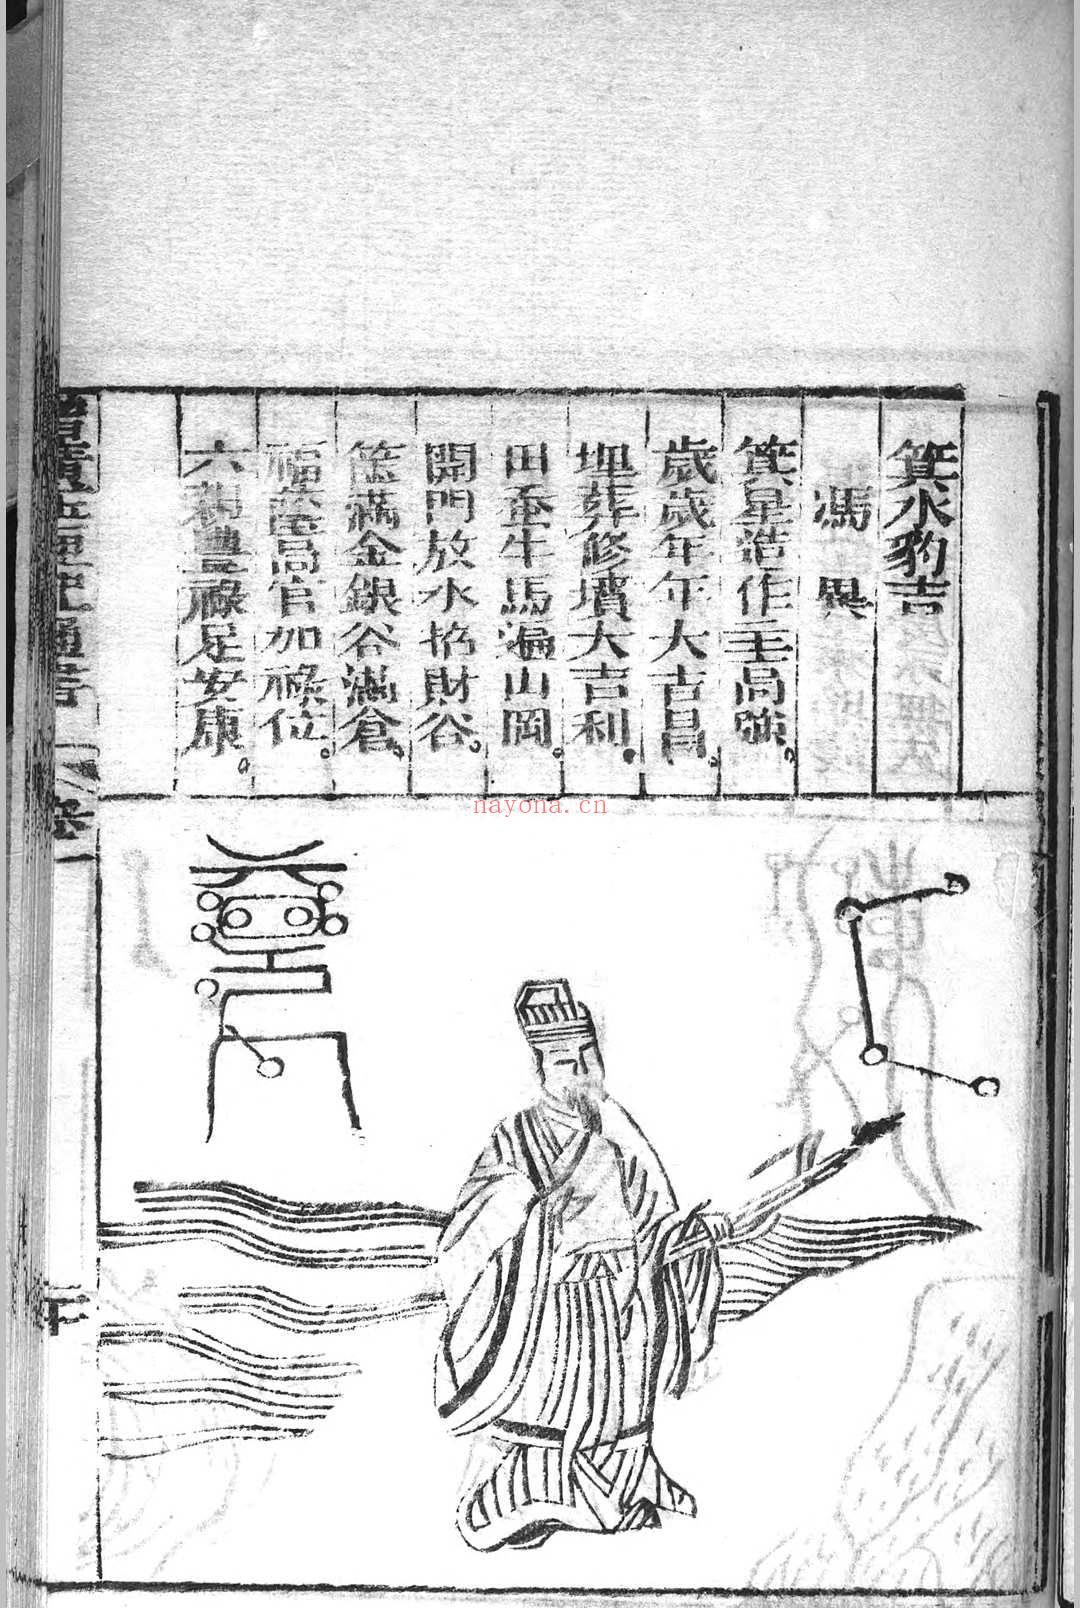 箕水豹吉
馮異
箕星造作主高強。
歲歲年年大吉昌。
埋葬修墳大吉利。
田蚕牛馬遍山岡。
開門放水招財谷。
篋滿金銀谷滿倉。
福蔭高官加祿位。
六親豊祿足安康。
nayona.cn